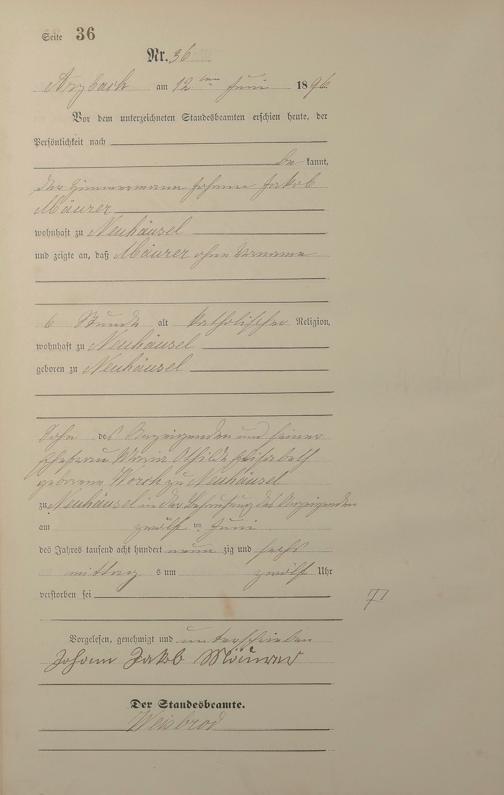 Seite 36
Nr. 36
Arzbach am 12ten Juni 1896
Vor dem unterzeichneten Standesbeamten erschien heute, der
Persönlichkeit nach
be kannt,
der Zimmermann Johann Jakob
Mäurer
wohnhaft zu Neuhäusel
und zeigte an, daß Mäurer ohne Vorname
6 Stunde alt katholischer Religion,
wohnhaft zu Neuhäusel
geboren zu Neuhäusel
Sohn des Anzeigenden und seiner
Ehefrau Maria Elisabeth
geborene zu Neuhäusel
zu Neuhäusel in der Behausung des Anzeigenden
am zwölf ten Juni
des Jahres tausend acht hundert neun zig und sechs
mittag s um zwölf Uhr
verstorben sei
77
Vorgelesen, genehmigt und unterschrieben
Johann Jakob Mäurer
Der Standesbeamte.
Weisbrod